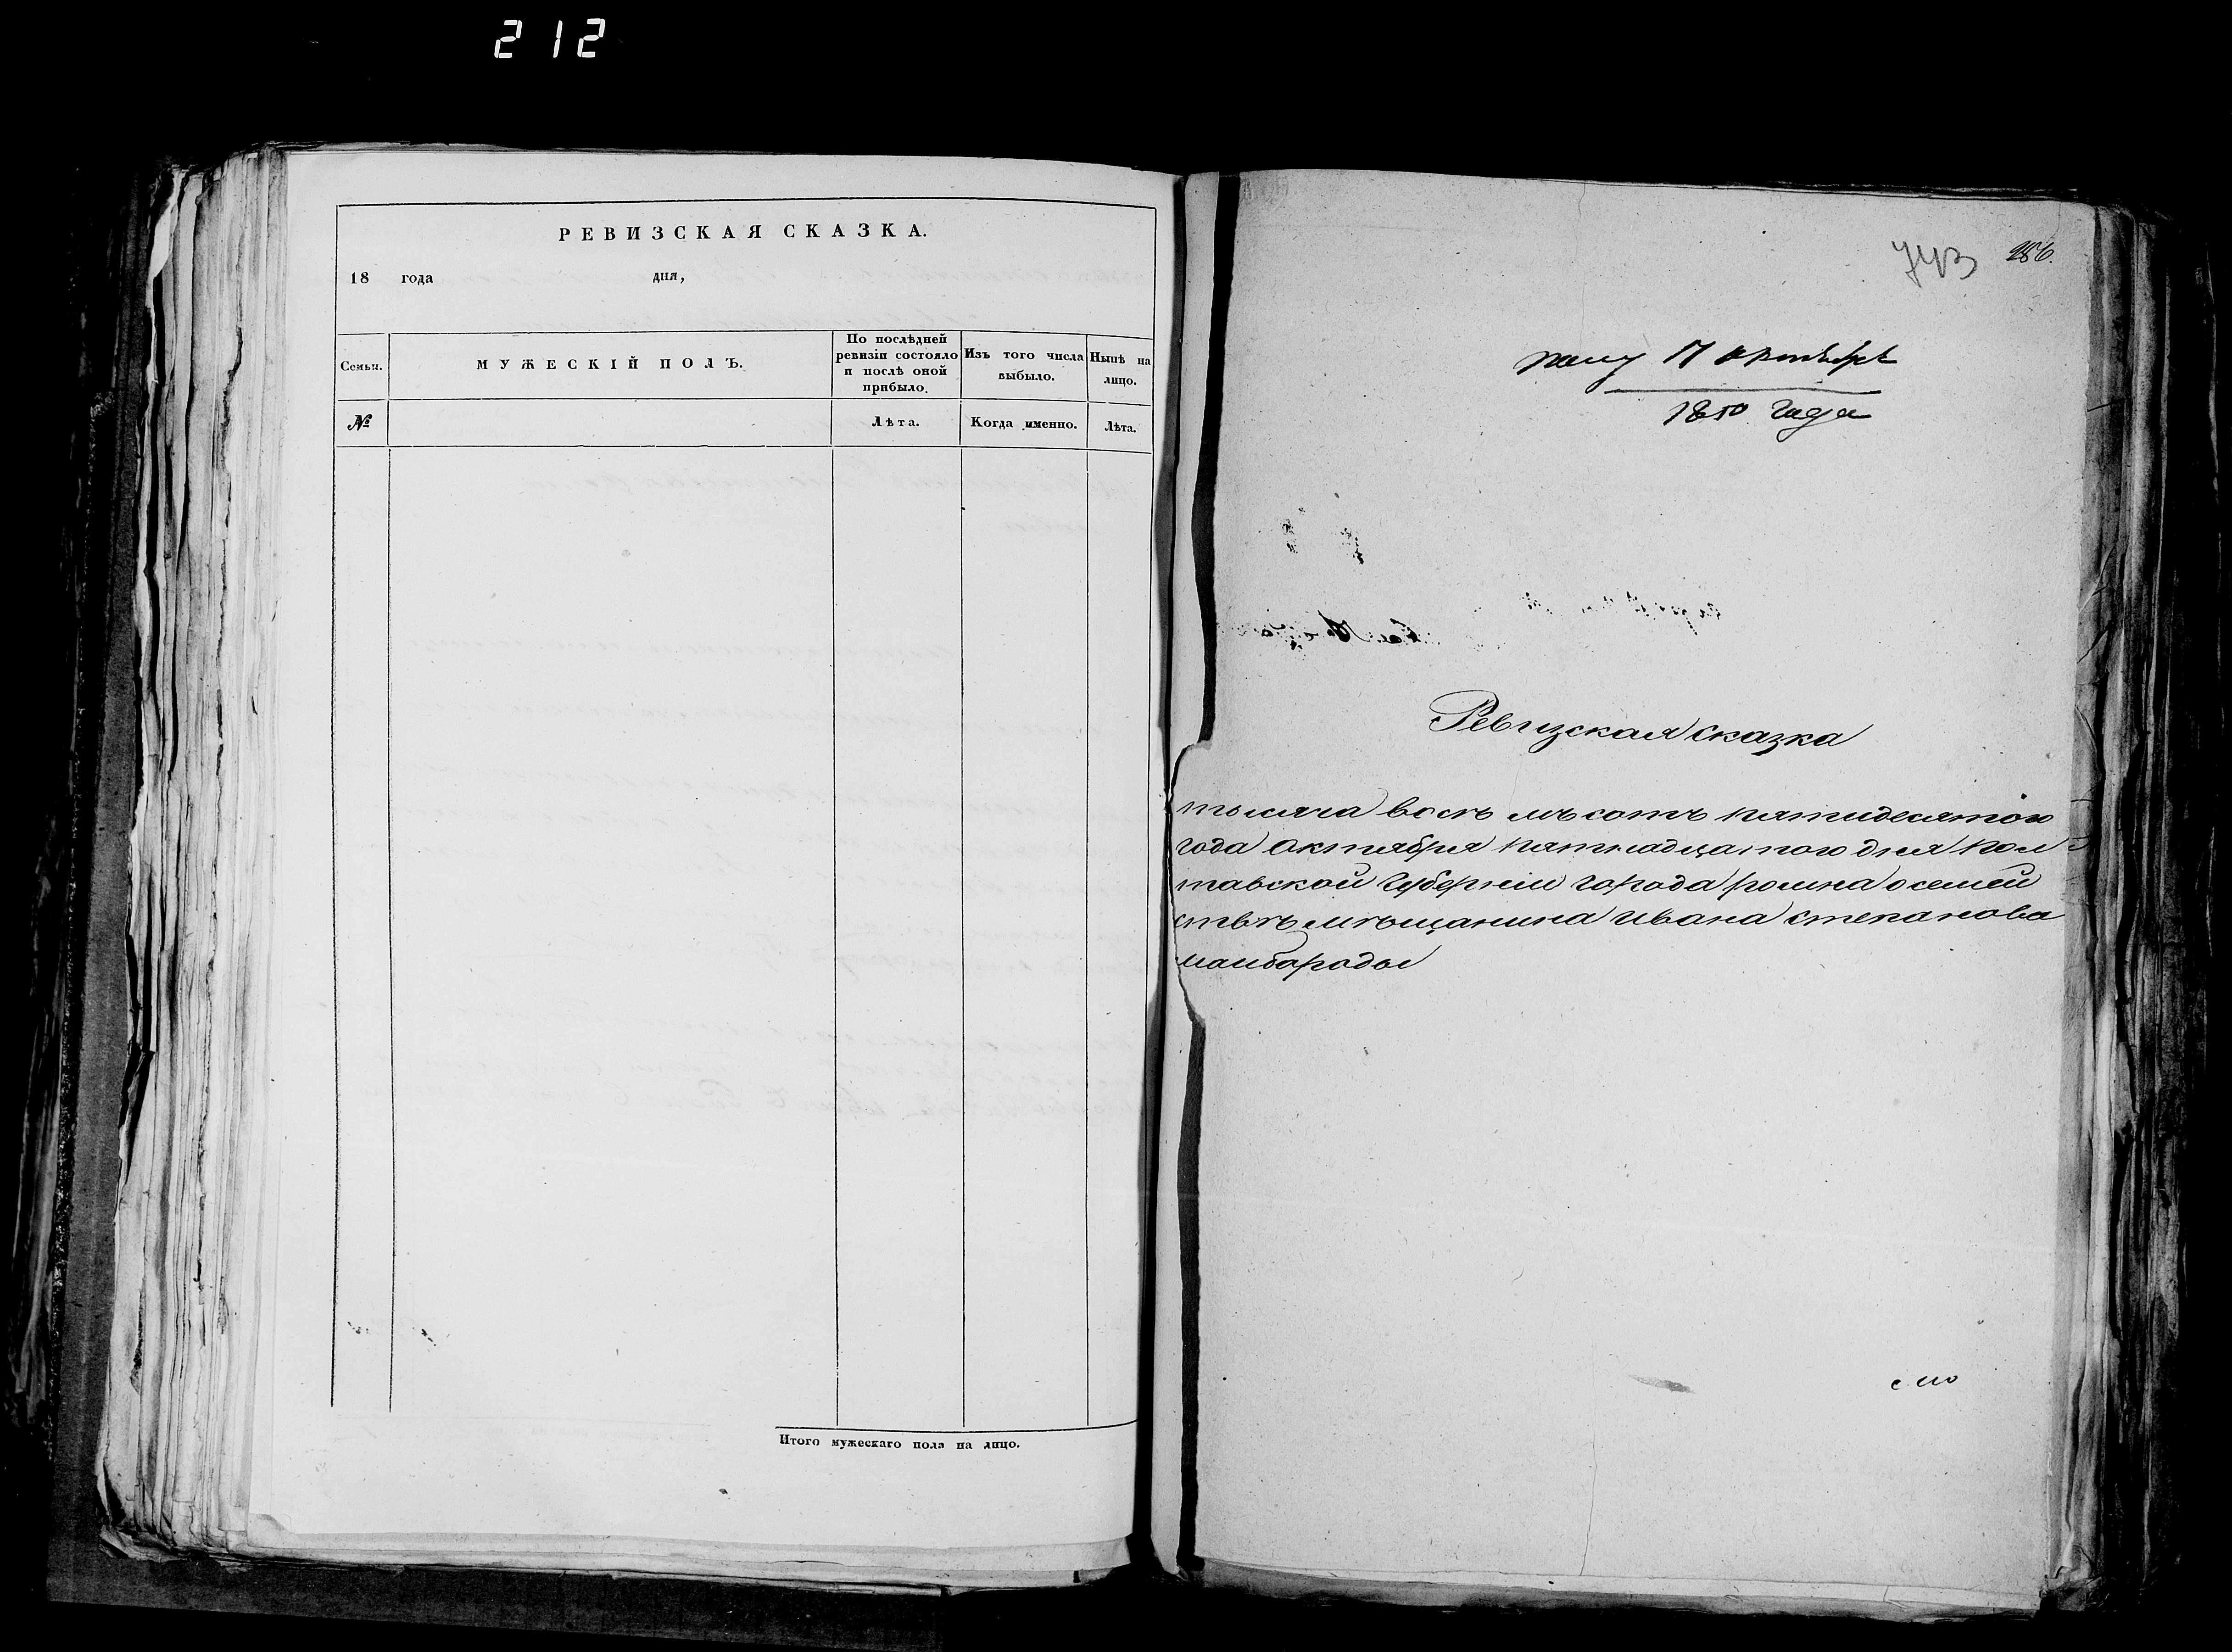 212
РЕВИЗСКАЯ СКАЗКА.
18 года дня,
Семьи. МУЖЕСКІЙ ПОЛЪ. По послѣдней ревизіи состояло и послѣ оной прибыло. Изъ того числа выбыло. Нынѣ на лицо.
№ Лѣта. Когда именно. Лѣта.
Итого мужескаго пола на лицо.
743 286.
17 октября
1850 года
Ревизская сказка
тысяча восъ мъ сотъ пятидесятого
года октября пятнадцатого дня Пол
тавской Губерніи города ромна о семей
ствѣ мѣщанина Ивана степанова
маибороды